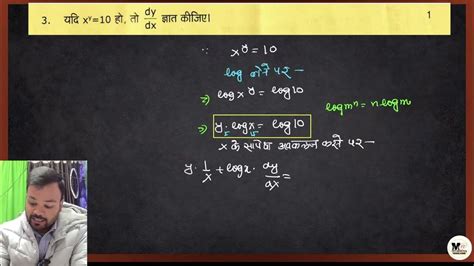 3. यदि xʸ=10 हो, तो dy/dx ज्ञात कीजिए। 1
∵ xʸ = 10
log लेने पर -
⇒ log xʸ = log 10
log mⁿ = n log m
⇒ y. log x = log 10
x के सापेक्ष अवकलन करने पर -
y. 1/x + log x. dy/dx =
M